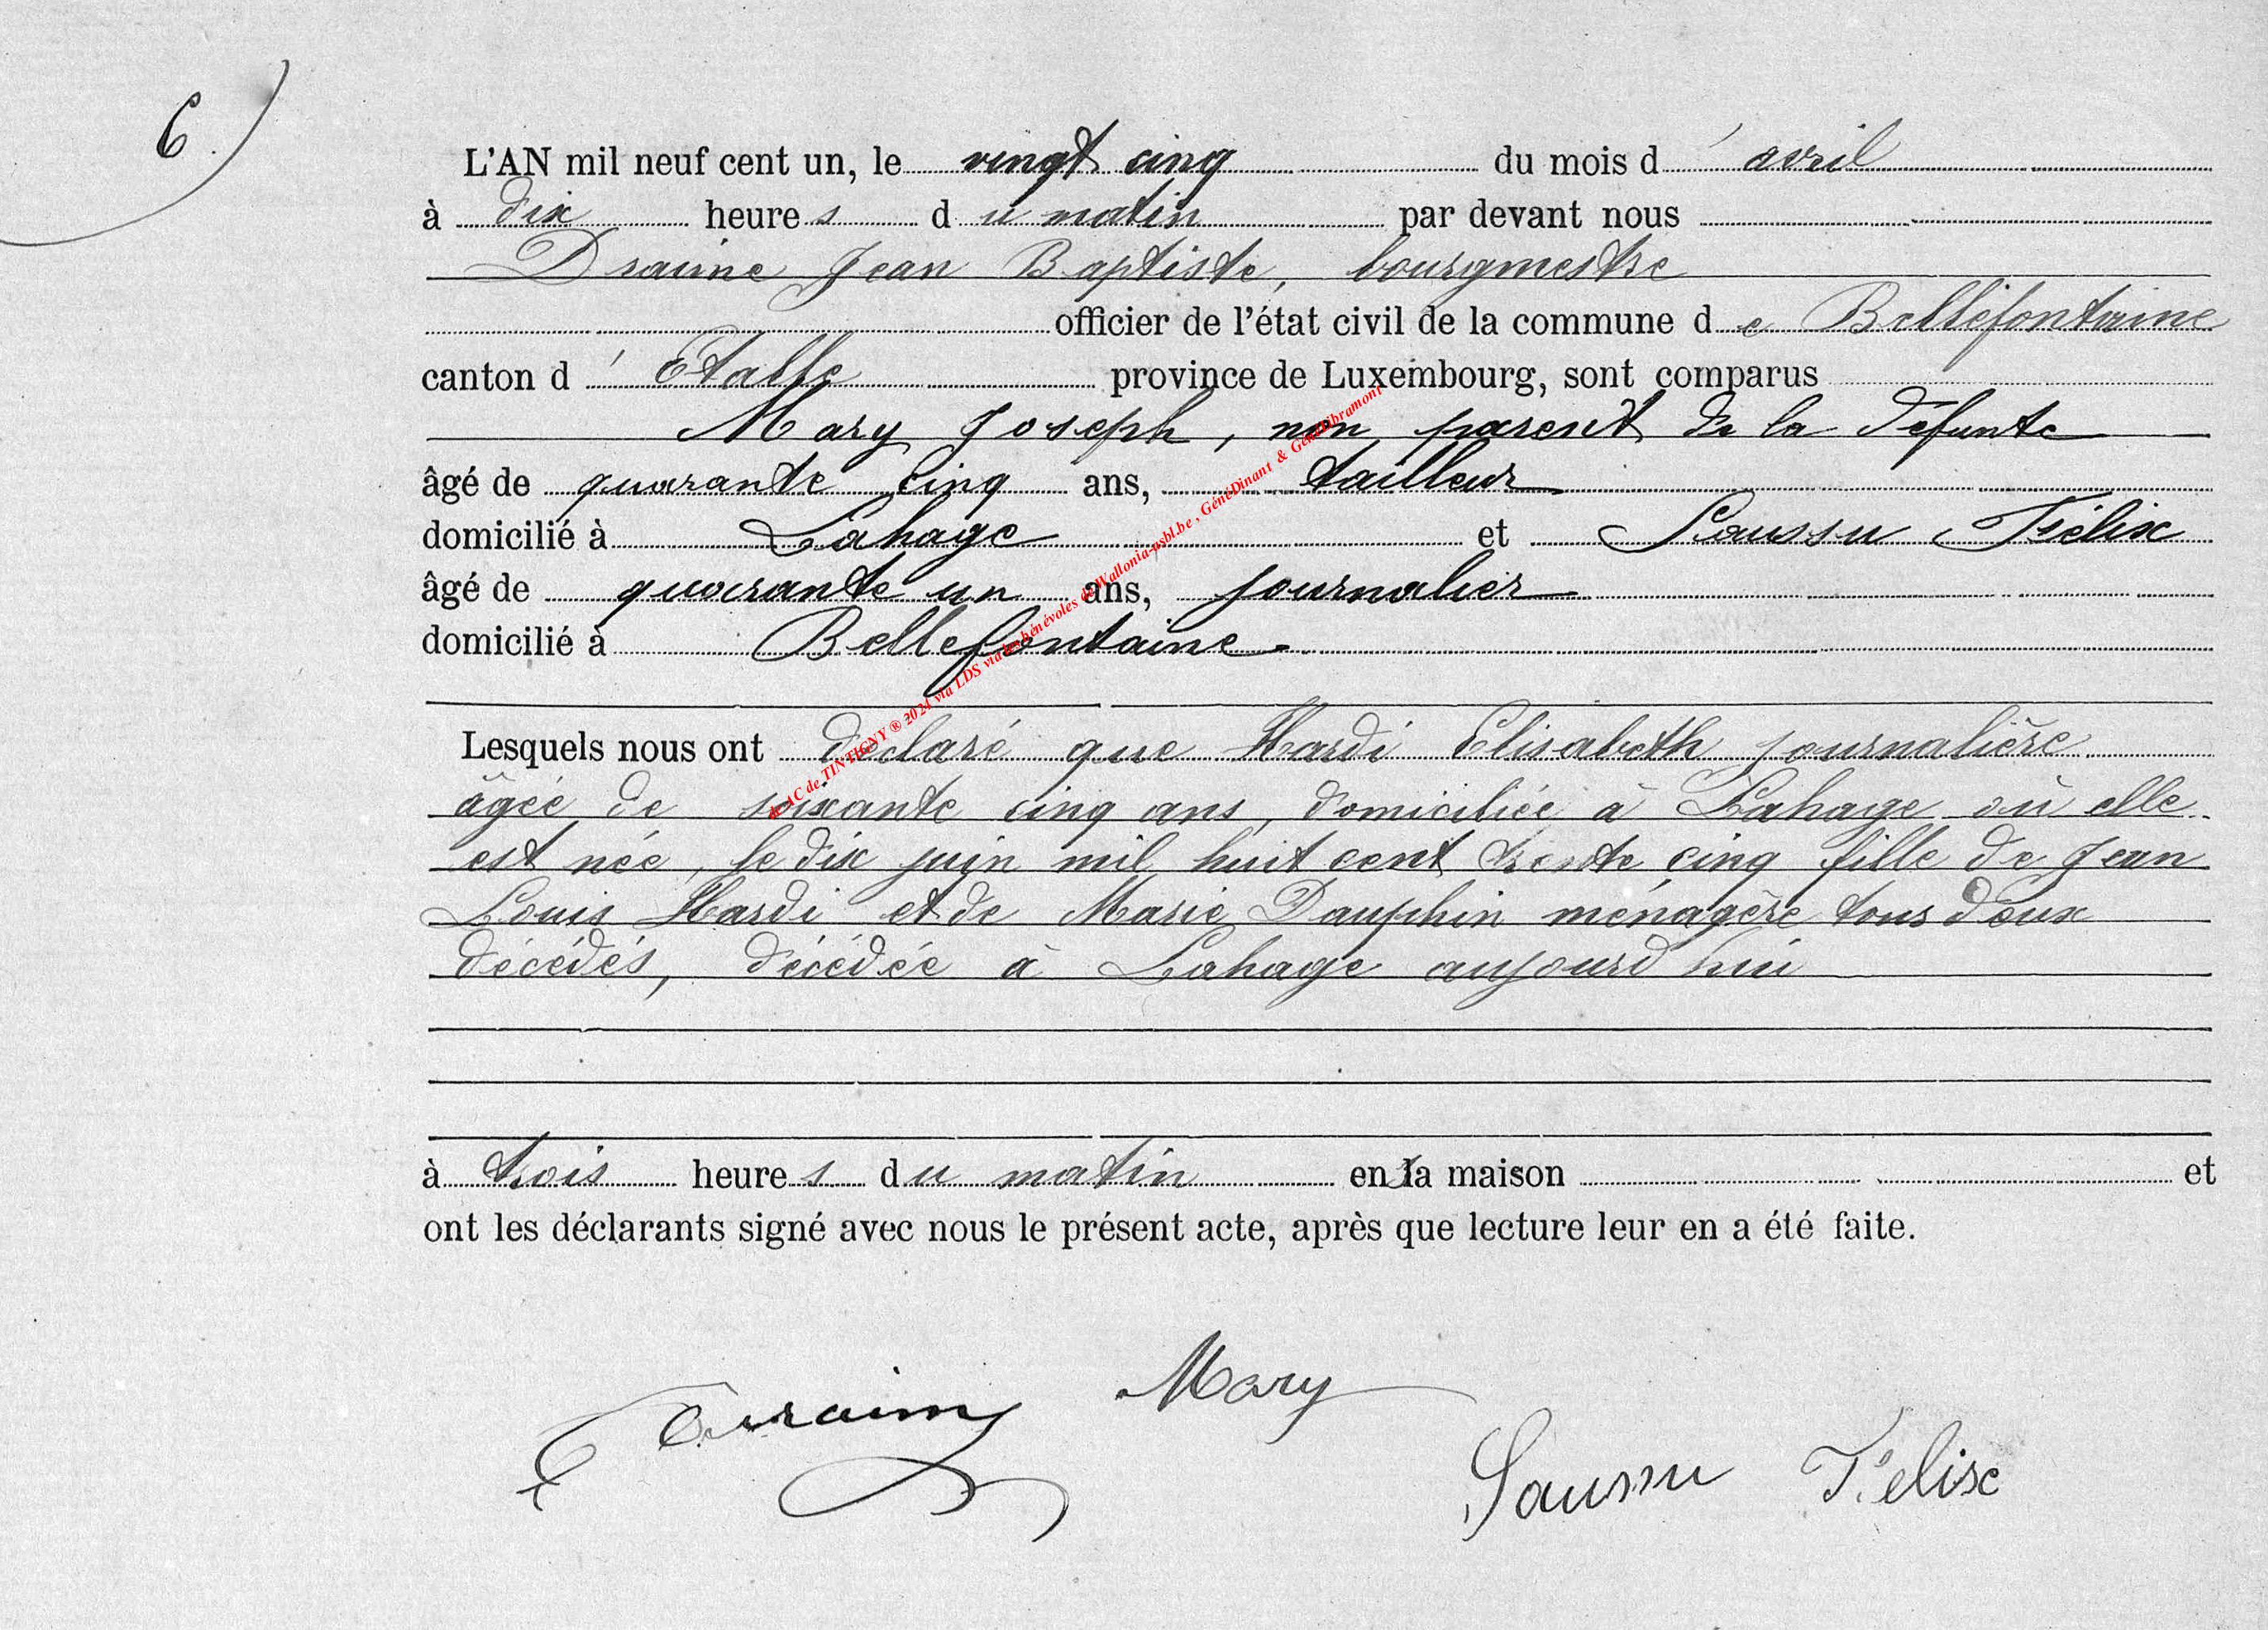 6.
L'AN mil neuf cent un, le vingt cinq du mois d'avril
à dix heures du matin par devant nous
Draime Jean Baptiste, bourgmestre
officier de l'état civil de la commune de Bellefontaine
canton d'Etalle province de Luxembourg, sont comparus
Mary Joseph, non parent de la défunte
âgé de quarante cinq ans, tailleur
domicilié à Lahage et Saussu Félix
âgé de quarante un ans, journalier
domicilié à Bellefontaine.
Lesquels nous ont déclaré que Hardi Elisabeth journalière
âgée de soixante cinq ans, domiciliée à Lahage où elle
est née, le dix juin mil huit cent trente cinq fille de Jean
Louis Hardi et de Marie Dauphin ménagère tous deux
décédés, décédée à Lahage aujourd'hui
à trois heures du matin en sa maison et
ont les déclarants signé avec nous le présent acte, après que lecture leur en a été faite.
Mary
Saussu Félix
de AC de TINTIGNY ® 2021 via LDS via les bénévoles de Wallonia-asbl.be, GénéDinant & GénéLibramont